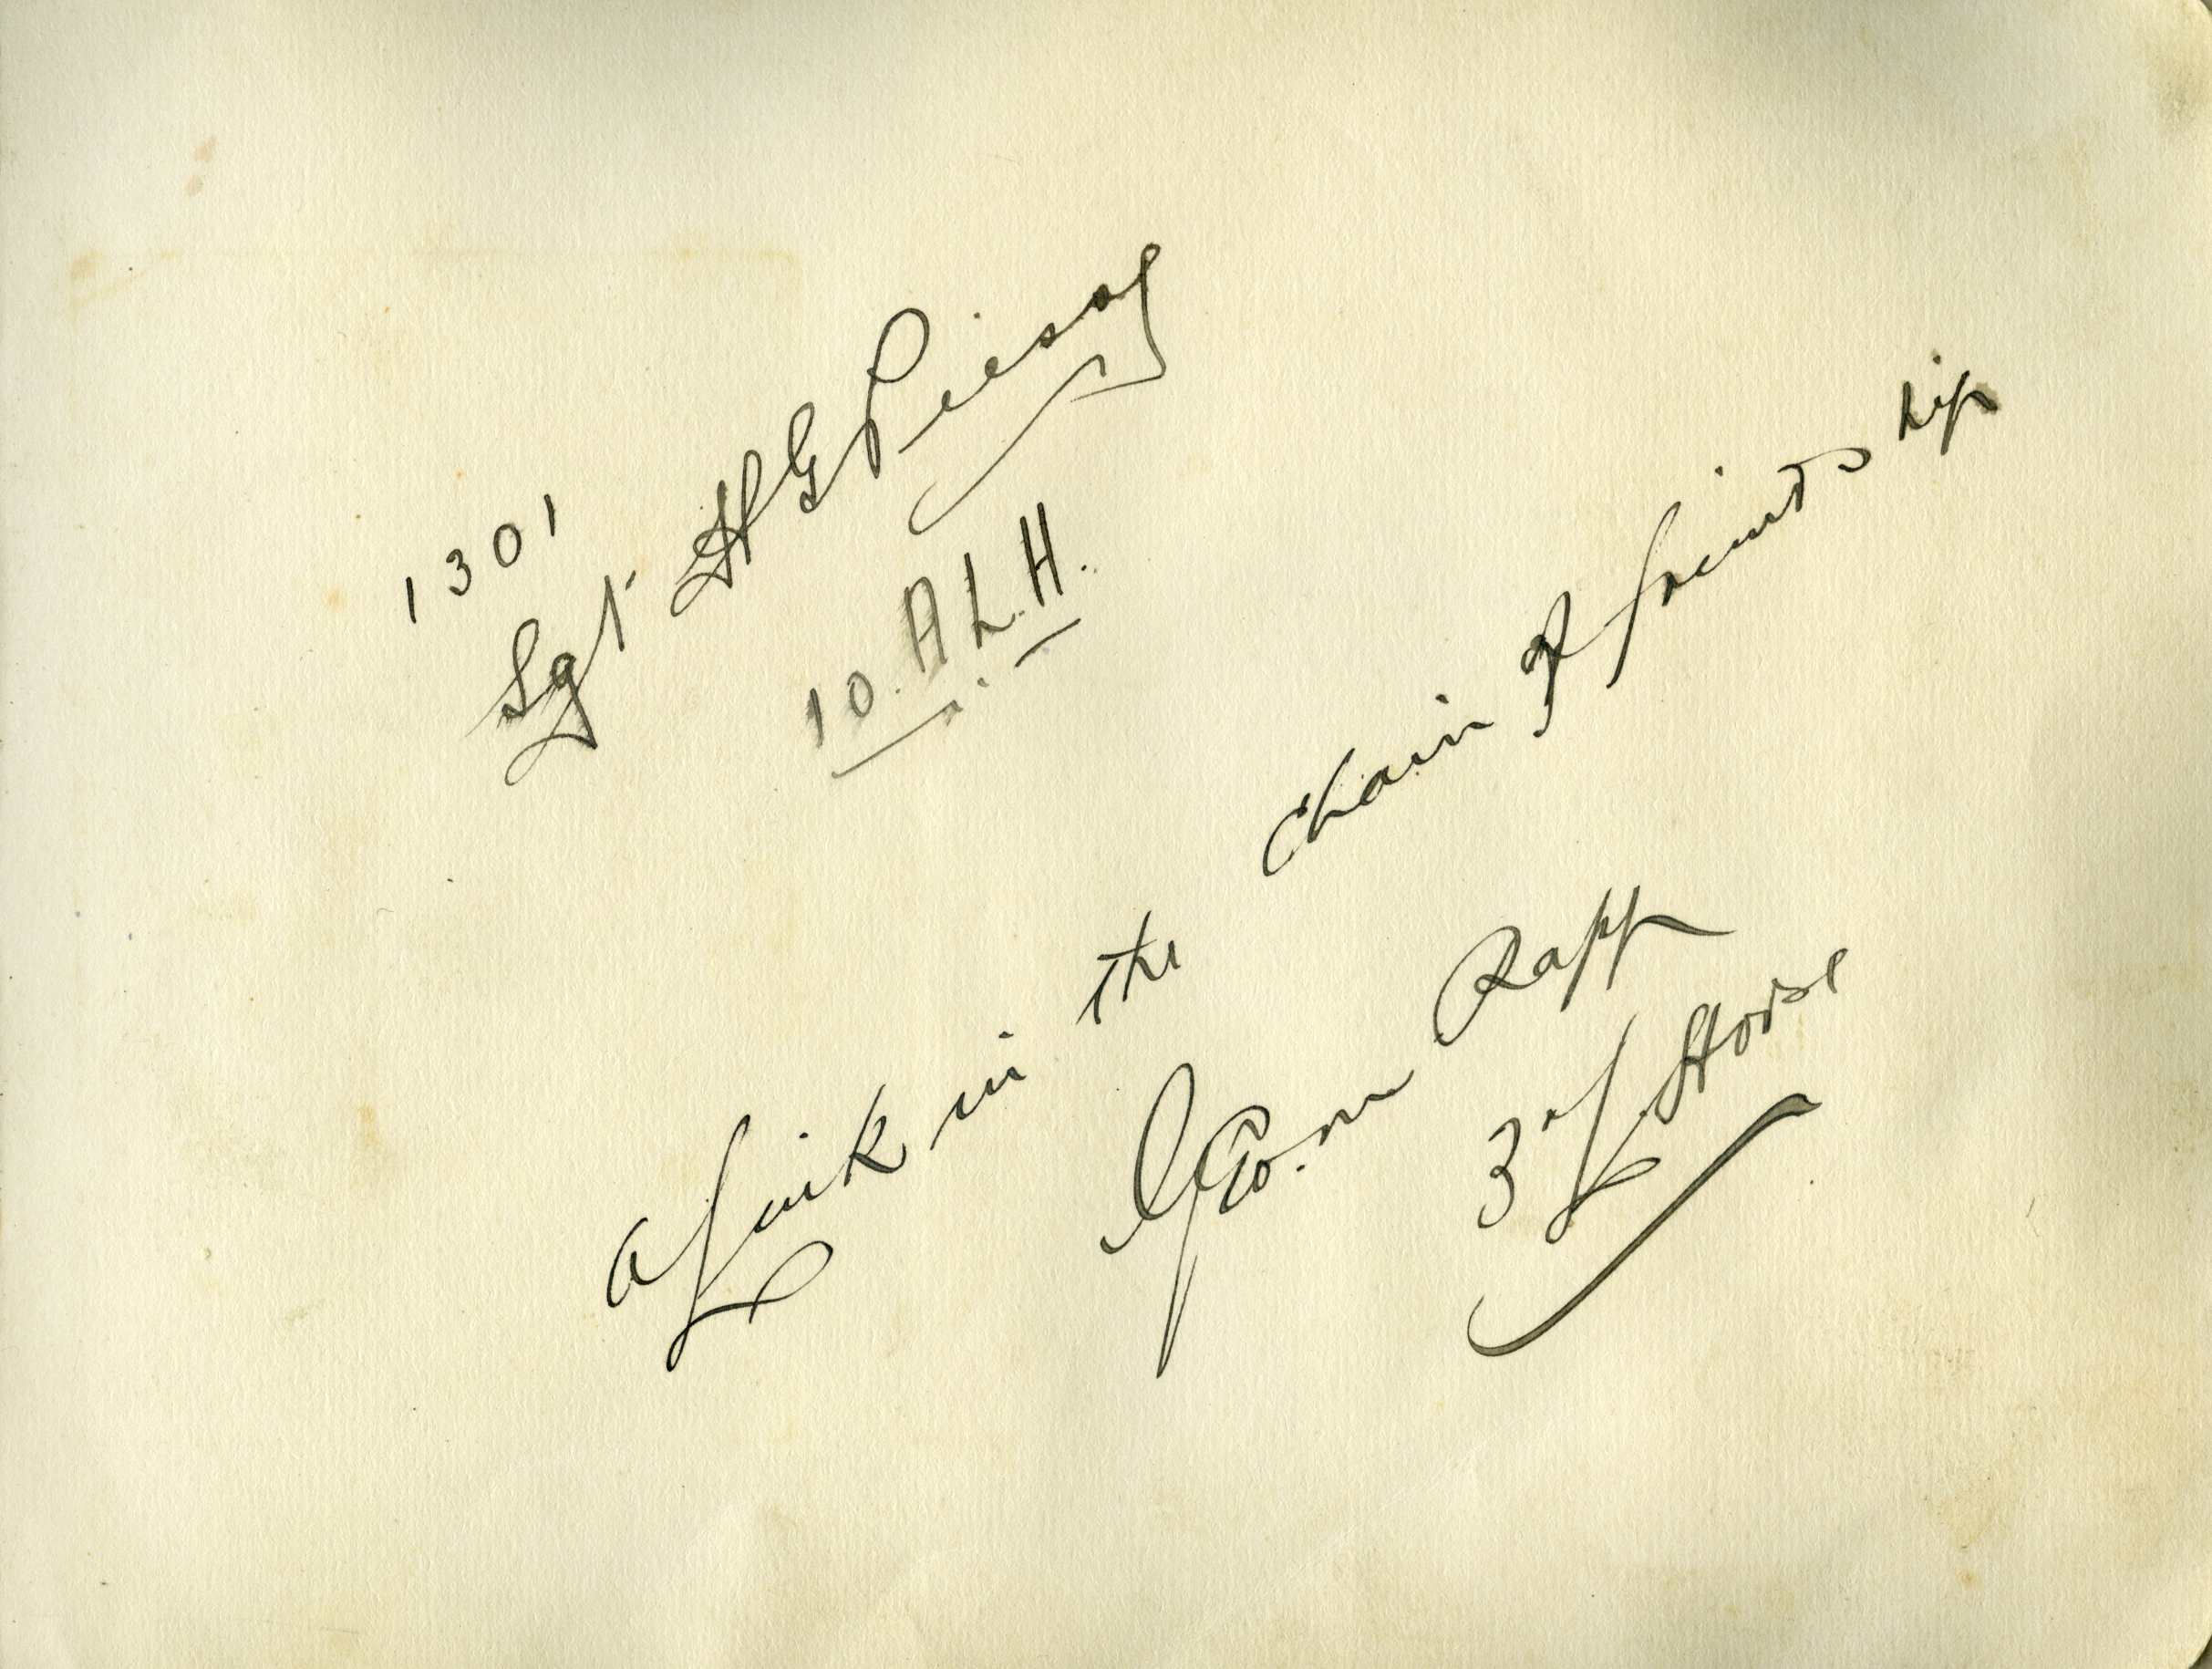 1301
Sgt H G
10. A. L. H.
a Link in the chain of friendship
Geo. M Rapp
3rd L. Horse